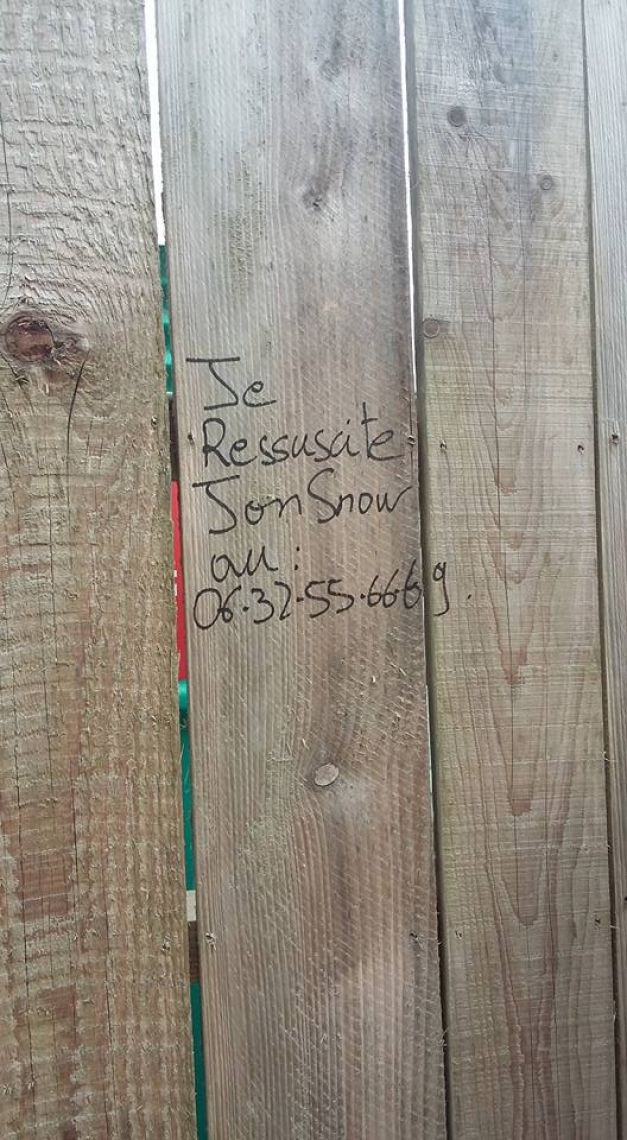 Je
Ressuscite
Jon Snow
au :
06.32.55.6669.